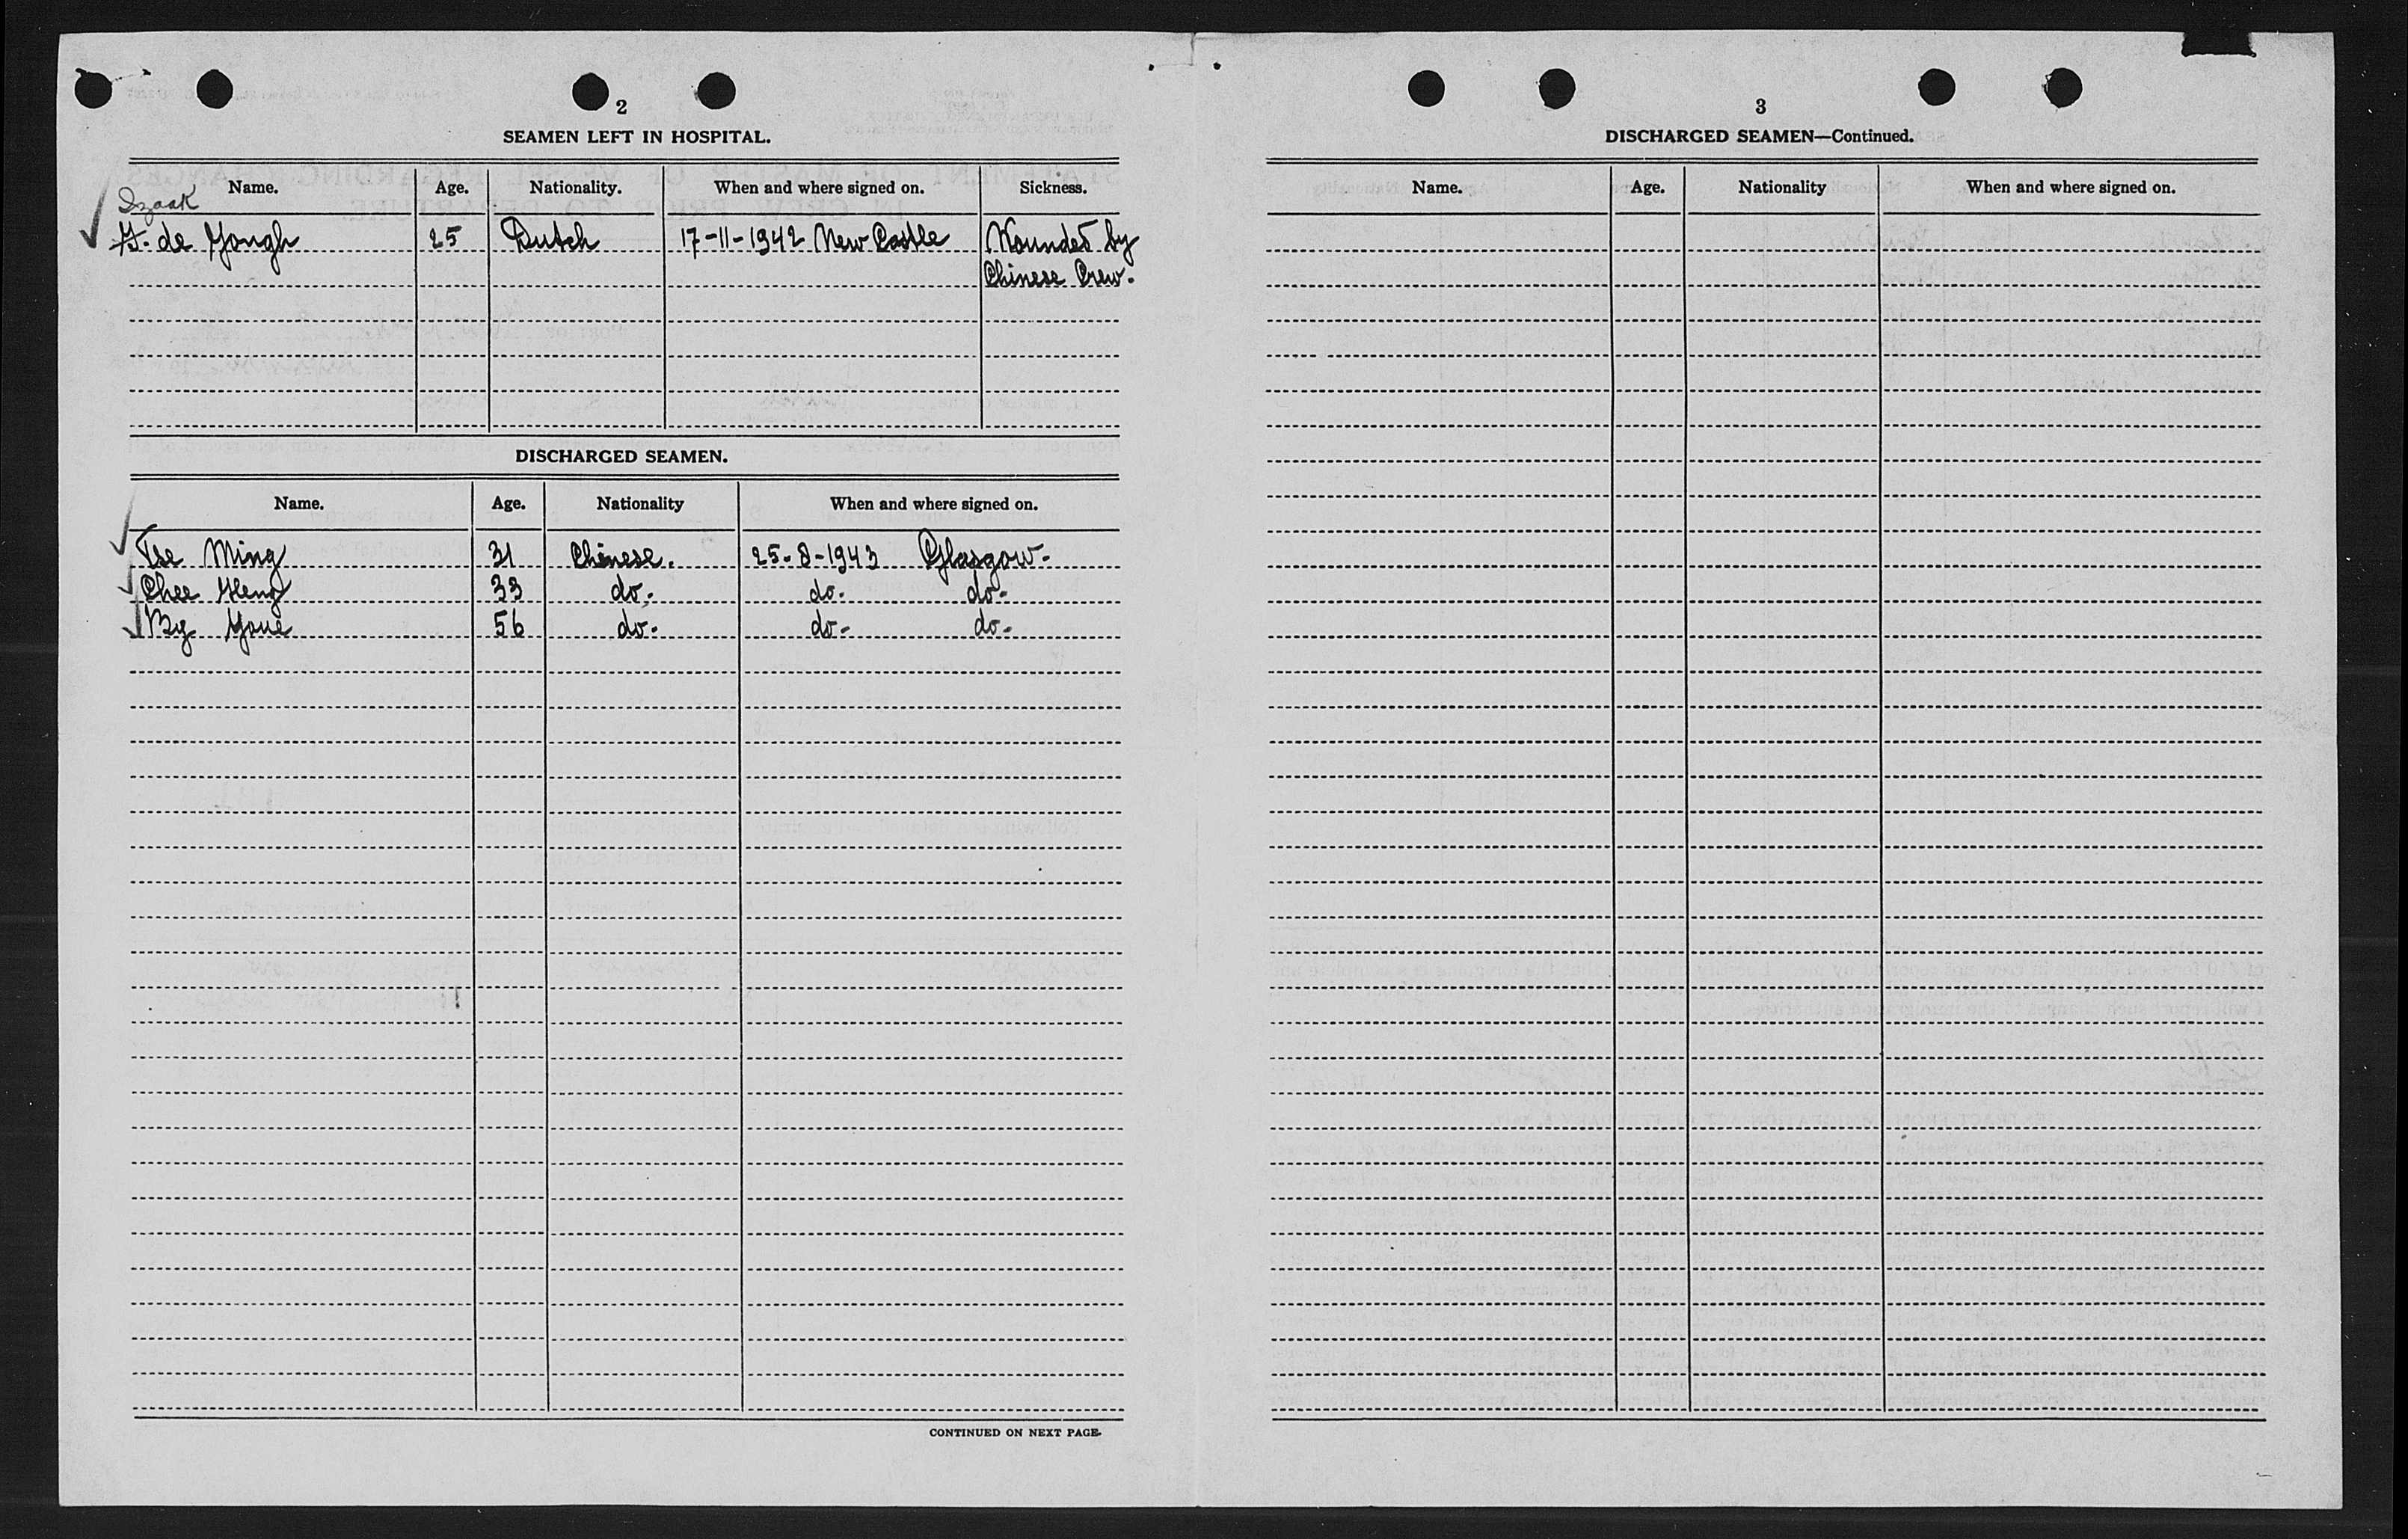 2
SEAMEN LEFT IN HOSPITAL.
Name. Age. Nationality. When and where signed on. Sickness.
Izaak
de Jongh 25 Dutch 17-11-1942 New Castle Wounded by
Chinese Crew.
DISCHARGED SEAMEN.
Name. Age. Nationality When and where signed on.
Tse Ming 31 Chinese. 25-8-1943 Glasgow-
Chee Heng 33 do. do. do-
56 do. do- do-
CONTINUED ON NEXT PAGE.
3
DISCHARGED SEAMEN—Continued.
Name. Age. Nationality When and where signed on.